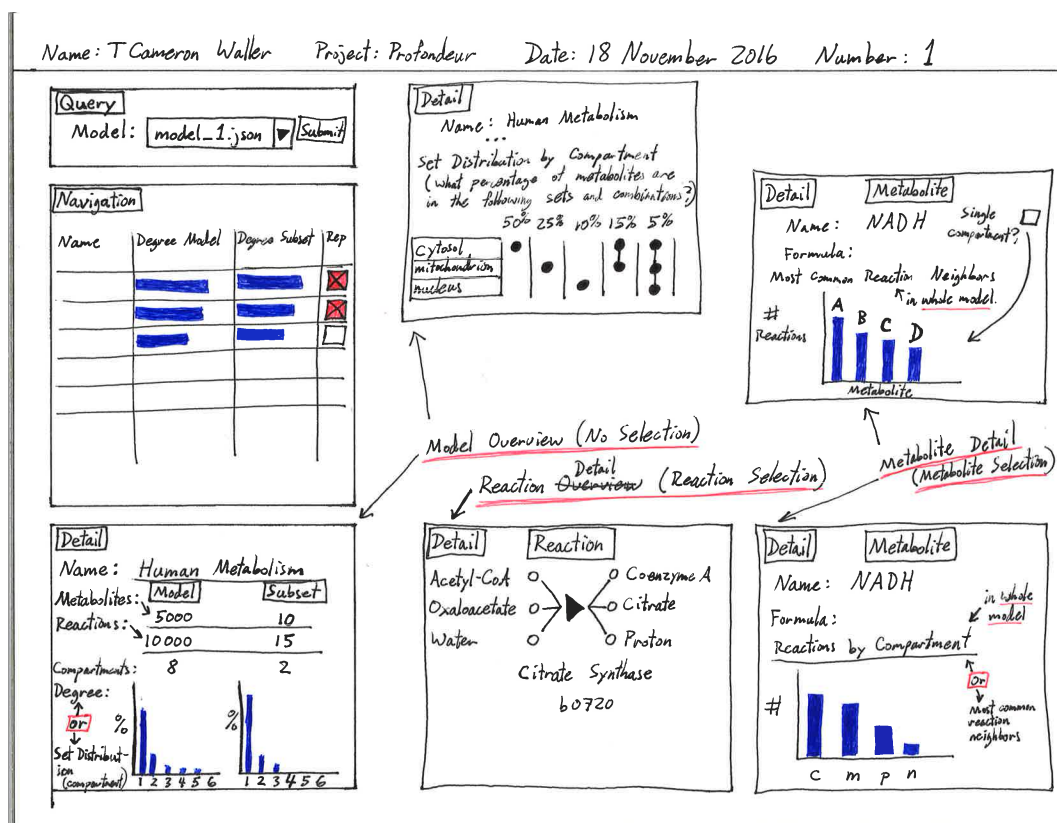 Name: T Cameron Waller Project: Profondeur Date: 18 November 2016 Number: 1
Query
Model: model_1.json Submit
Navigation
Name Degree Model Degree Subset Rep
Detail
Name: Human Metabolism
...
Set Distribution by Compartment
(what percentage of metabolites are
in the following sets and combinations?)
50% 25% 10% 15% 5%
Cytosol
mitochondrion
nucleus
Detail Metabolite
Name: NADH
Single
compartment?
Formula:
Most Common Reaction Neighbors
in whole model.
#
Reactions
A B C D
Metabolite
Model Overview (No Selection)
Detail
Reaction Overview (Reaction Selection)
Metabolite Detail
(Metabolite Selection)
Detail
Name: Human Metabolism
Model Subset
Metabolites: 5000 10
Reactions: 10000 15
Compartments: 8 2
Degree:
or
Set Distribut-
ion
(compartment)
%
1 2 3 4 5 6
%
1 2 3 4 5 6
Detail Reaction
Acetyl-CoA Coenzyme A
Oxaloacetate Citrate
Water Proton
Citrate Synthase
b0720
Detail Metabolite
Name: NADH
Formula:
in whole
model
Reactions by Compartment
or
Most common
reaction
neighbors
#
c m p n